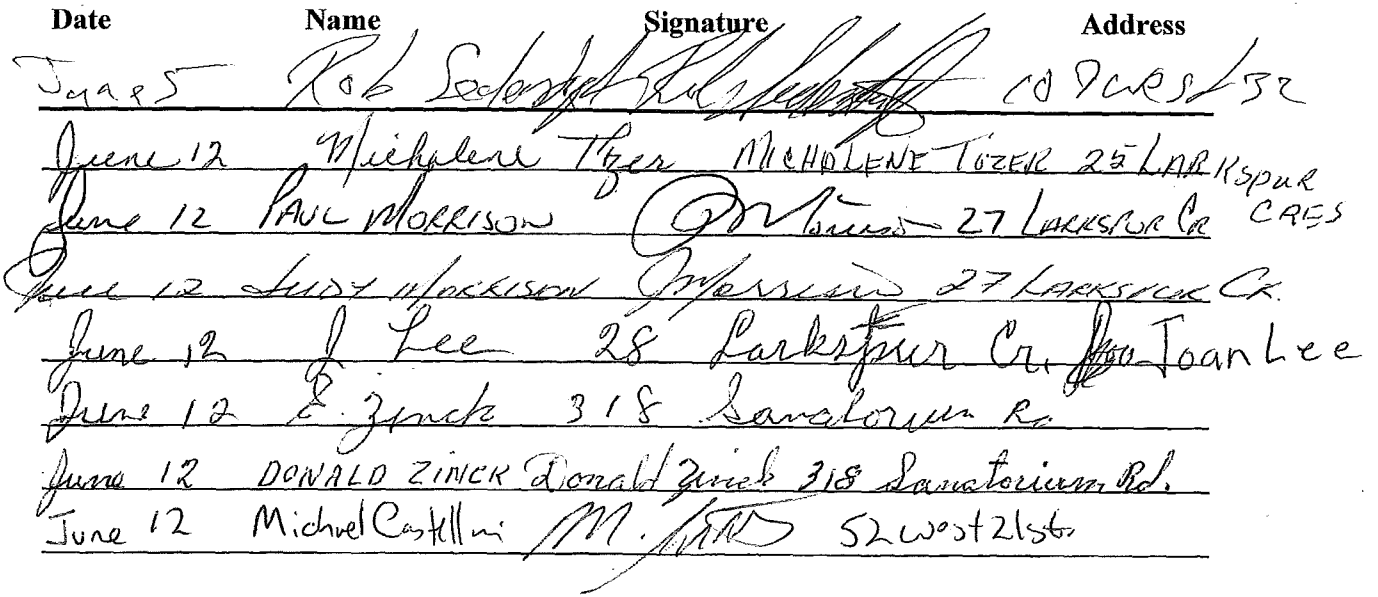 Date Name Signature Address
June 5 Rob
June 12 Michalene Tozer MICHALENE TOZER 25 LARKSPUR CRES
June 12 PAUL MORRISON Morrison 27 LARKSPUR CR
June 12 JUDY MORRISON J Morrison 27 LARKSPUR CR.
June 12 J Lee 28 Larkspur Cr. Joan Lee
June 12 E. Zinck 318 Sanatorium Rd
June 12 DONALD ZINCK Donald Zinck 318 Sanatorium Rd.
June 12 Michael Castellini M. 52 west 21st